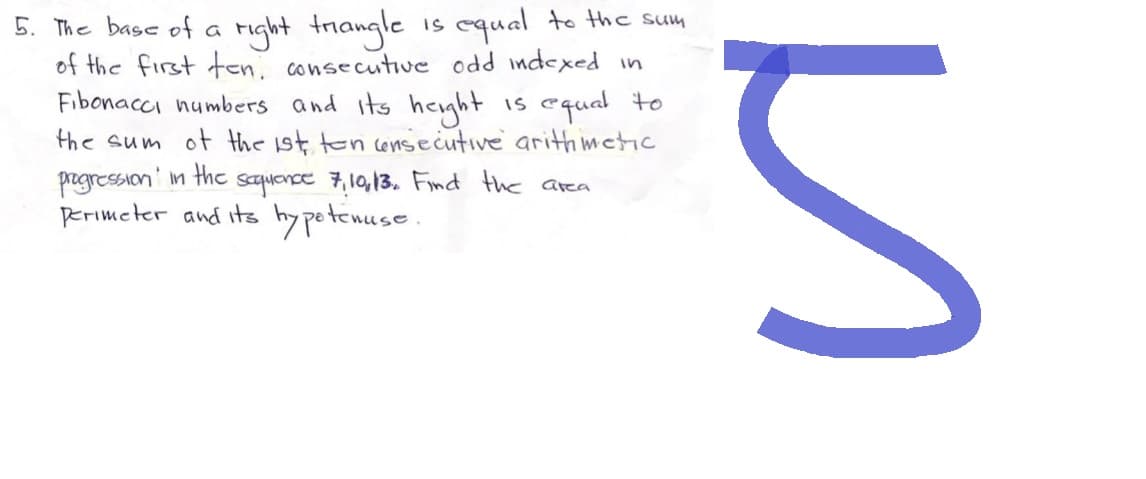 5. The base of a right triangle is equal to the sum
of the first ten, consecutive odd indexed in
Fibonacci numbers and its height is equal to
the sum of the 1st ten consecutive arithmetic
progression in the sequence 7,10,13. Find the area
Perimeter and its hypotenuse.
5